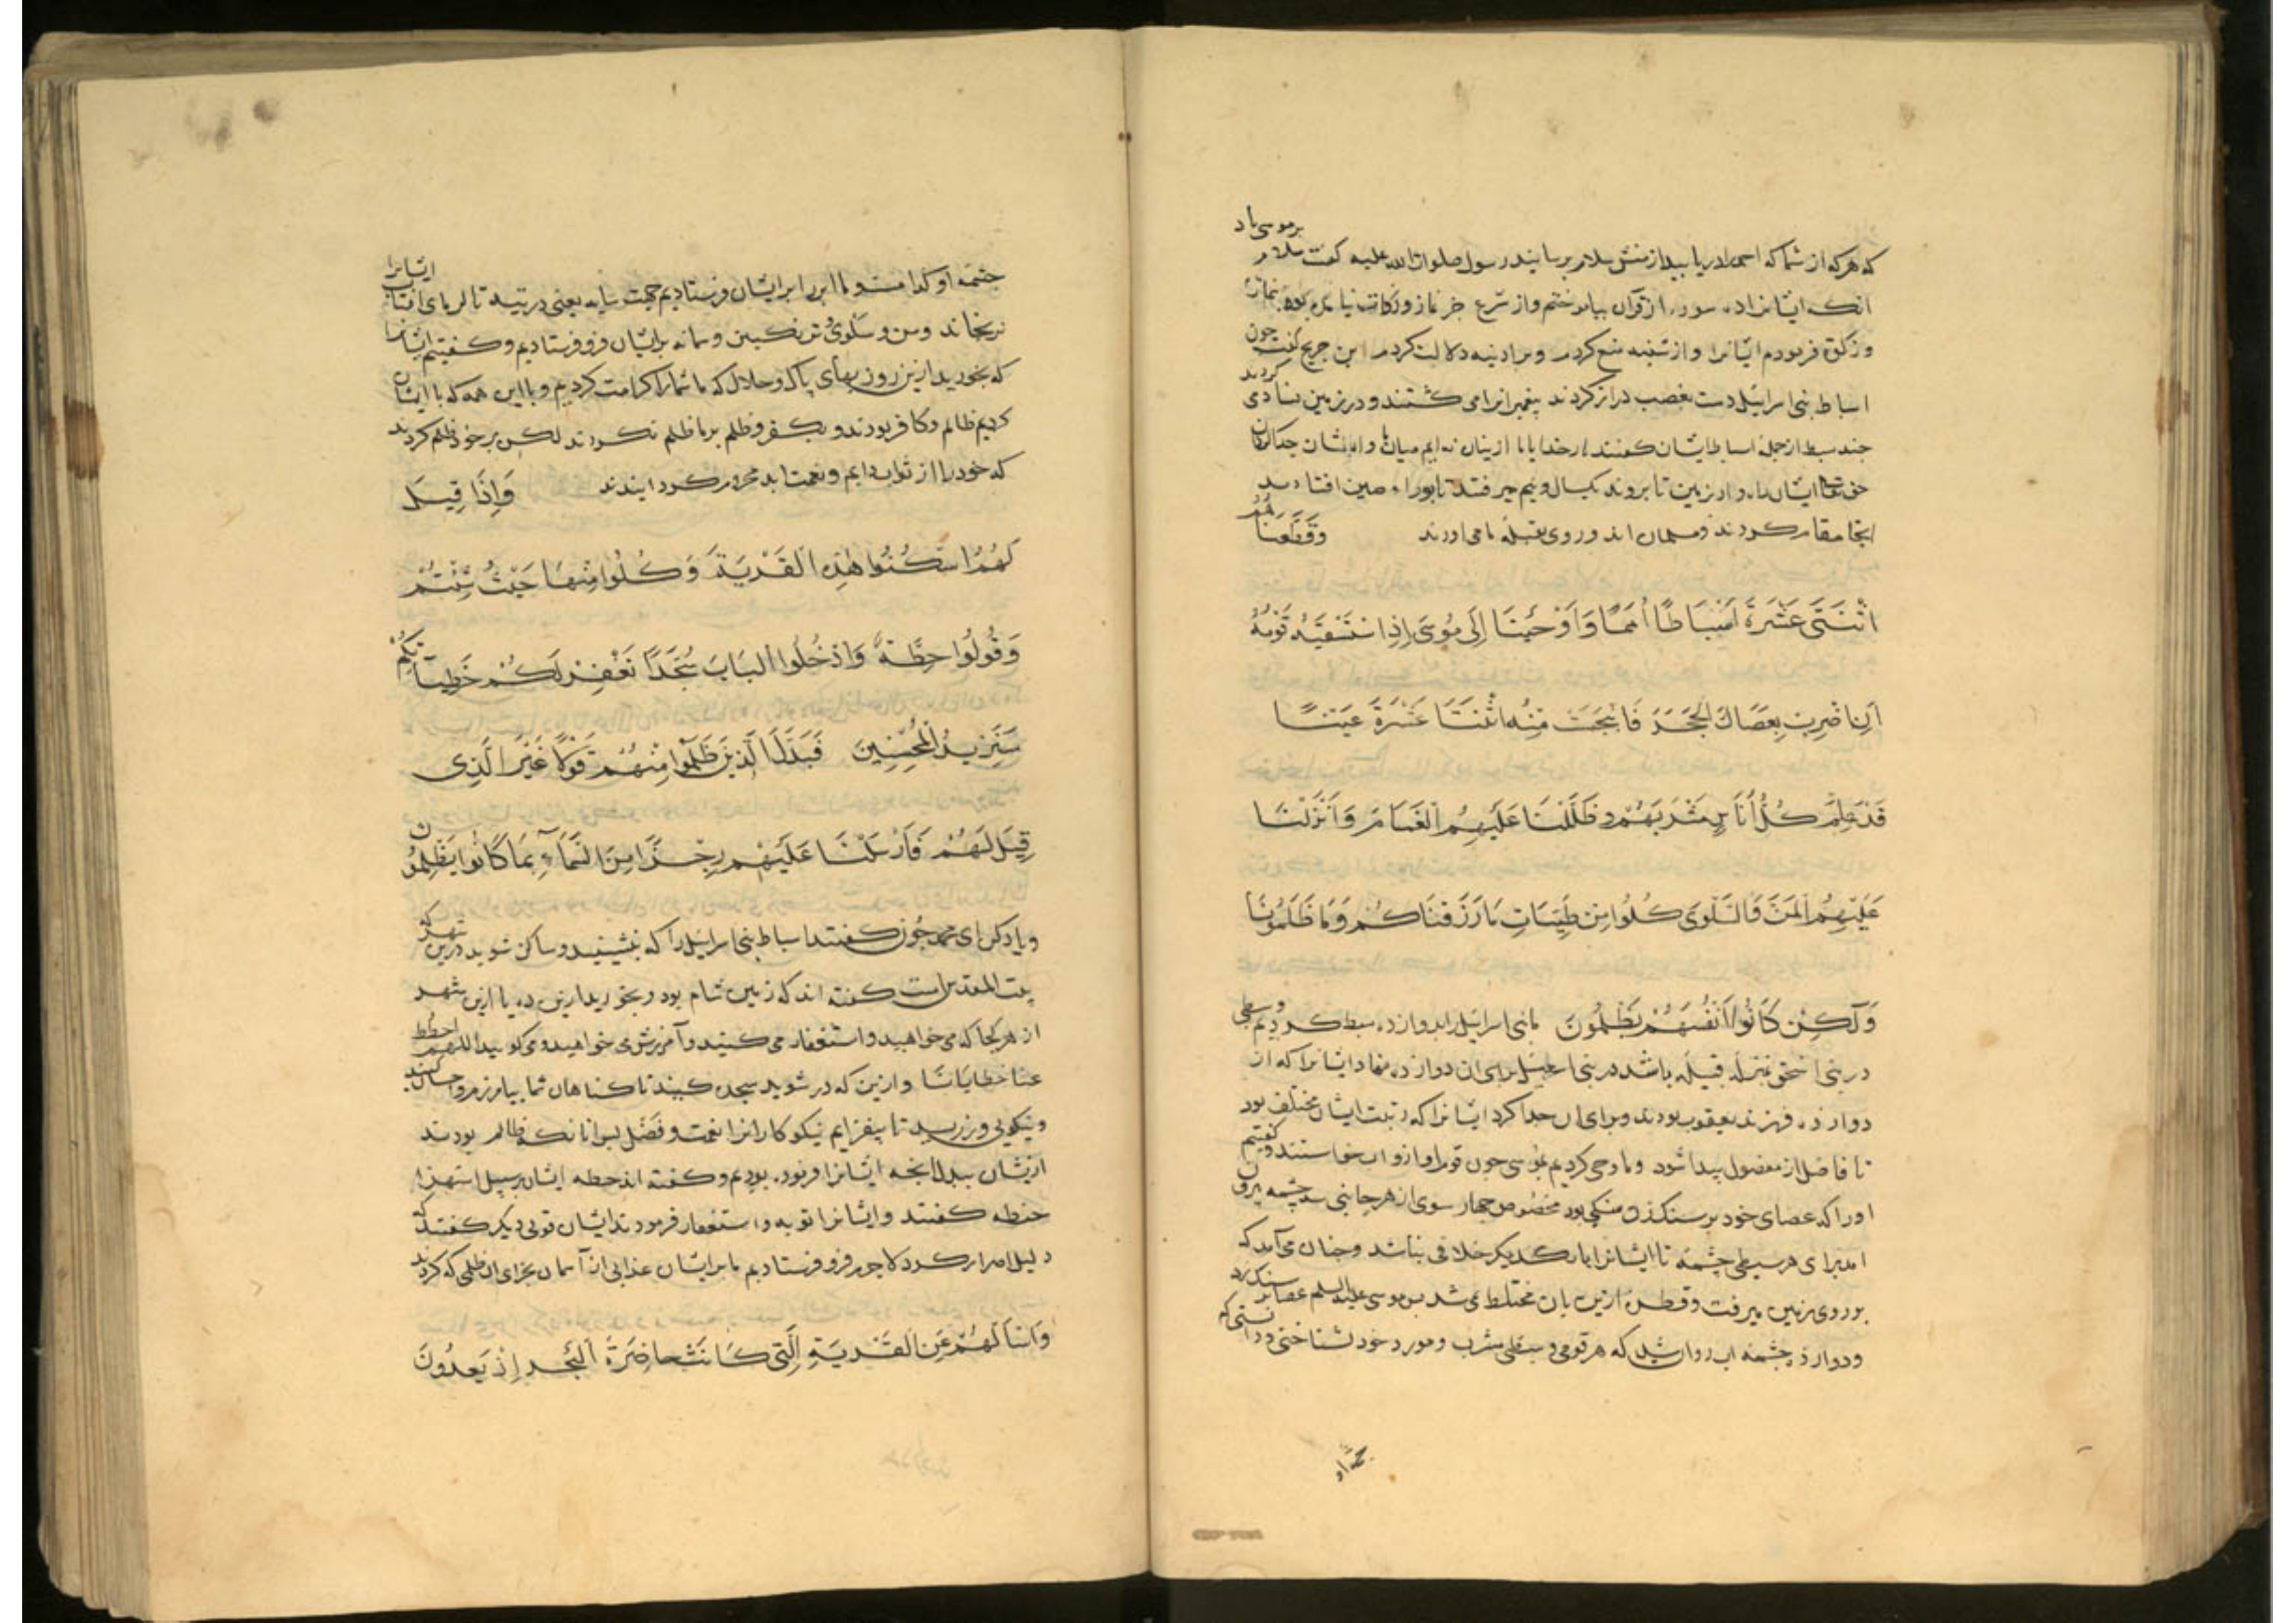 بر موسی باد
که هرکه از شما که احمد را دریابید از منش سلام برسانید رسول صلوات الله علیه کفت سلام
انک ایشانراده سوره از قران بیاموختم واز شرع جز نماز وزکات نیامده بود بنماز
وزکوة فرمودم ایشانرا واز شنبه منع کردم وبر ادینه دلالت کردم ابن جریج کفت جون
اسباط بنی اسرایل دست بغصب دراز کردند بیغمبرانرا می کشتند ودر زمین فسادی کردند
جند سبط از جمله اسباط ایشان کفتند بار خدایا ما ازینان نه ایم میان ما وایشان جدا کردان
حق تعا ایشانرا در زمین تا بروند یکسال ونیم می رفتند تا بوراء صین افتادند
ایجا مقام کردند ومسلمان اند وروی بقبله ما می اورند وَقَطَّعْنَاهُمُ
اثْنَتَيْ عَشَرَةَ اَسْبَاطًا اُمَمًا وَاَوْحَيْنَا اِلَى مُوسَى اِذِ اسْتَسْقَيهُ قَوْمُهُ
اَنِ اضْرِبْ بِعَصَاكَ الْحَجَرَ فَانْبَجَسَتْ مِنْهُ اثْنَتَا عَشْرَةَ عَيْنًا
قَدْ عَلِمَ كُلُّ اُنَاسٍ مَشْرَبَهُمْ وَظَلَّلْنَا عَلَيْهِمُ الْغَمَامَ وَاَنْزَلْنَا
عَلَيْهِمُ الْمَنَّ وَالسَّلْوَى كُلُوا مِنْ طَيِّبَاتِ مَا رَزَقْنَاكُمْ وَمَا ظَلَمُونَا
وَلَكِنْ كَانُوا اَنْفُسَهُمْ يَظْلِمُونَ ما بنی اسرایل را بدوازده سبط کردیم وسبطی
در بنی اسحق بمنزله قبیله باشد در بنی اسمعیل برای ان دوازده نهاد ایشانرا که از
دوازده فرزند یعقوب بودند وبرای ان جدا کرد ایشانرا که رتبت ایشان مختلف بود
تا فاضل از مفضول بیدا شود وما وحی کردیم بموسی جون قوم او ازو اب خواستند وکفتیم
اورا که عصای خود بر سنک زن سنکی بود مخصوص جهار سوی از هر جانبی سه چشمه برون
امد برای هر سبطی چشمه تا ایشانرا با یکدیکر خلافی نباشد وجنان می آمد که
بر روی زمین میرفت وقطره ازین بان مختلط نمی شد بس موسی علیه السلم عصا بر سنک زد
ودوازده چشمه اب روان شد که هر قومی وسبطی مشرب ومورد خود بشناختی ودانستی که
چشمه او کدامست وما ابر را بر ایشان فرستادیم جهت سایه یعنی در تیه تا کرمای افتاب ایشانرا
نرنجاند ومن وسلوی ترنکبین وسمانه بر ایشان فرو فرستادیم وکفتیم ایشانرا
که بخورید ازین روزیهای پاک وحلال که ما شمارا کرامت کردیم وبا این همه که با ایشان
کردیم ظالم وکافر بودند وبکفر وظلم بر ما ظلم نکردند لکن بر خود ظلم کردند
که خود را از ثواب دایم ونعمت ابد محروم کردانیدند وَاِذَا قِيلَ
لَهُمُ اسْكُنُوا هٰذِهِ الْقَرْيَةَ وَكُلُوا مِنْهَا حَيْثُ شِئْتُمْ
وَقُولُوا حِطَّةٌ وَادْخُلُوا الْبَابَ سُجَّدًا نَغْفِرْ لَكُمْ خَطِيئَاتِكُمْ
سَنَزِيدُ الْمُحْسِنِينَ فَبَدَّلَ الَّذِينَ ظَلَمُوا مِنْهُمْ قَوْلًا غَيْرَ الَّذِى
قِيلَ لَهُمْ فَاَرْسَلْنَا عَلَيْهِمْ رِجْزًا مِنَ السَّمَآءِ بِمَا كَانُوا يَظْلِمُونَ
ویاد کن ای محمد جون کفتند اسباط بنی اسرایل را که بنشینید وساکن شوید درین شهر که
بیت المقدس است کفته اند که زمین شام بود وبخورید ازین ده یا ازین شهر
از هر کجا که می خواهید واستغفار می کنید وآمرزش می خواهید ومی کویید اللهم احطط
عنا خطایانا وازین که در شوید سجده کنید تا کناهان شما بیامرزم واحسان کنید
ونیکویی ورزید تا بیفزایم نیکوکارانرا نعمت وفضل بس انانکه ظالم بودند
ازیشان بدل انجه ایشانرا فرموده بودیم وکفته اند حطه ایشان بر سبیل استهزا
حنطه کفتند وایشانرا توبه واستغفار فرمودند ایشان قولی دیکر کفتند که
دلیل اصرار کرد لاجرم فرو فرستادیم ما بر ایشان عذابی از آسمان بجزای ان ظلمی که کردند
وَاسْئَلْهُمْ عَنِ الْقَرْيَةِ الَّتِى كَانَتْ حَاضِرَةَ الْبَحْرِ اِذْ يَعْدُونَ